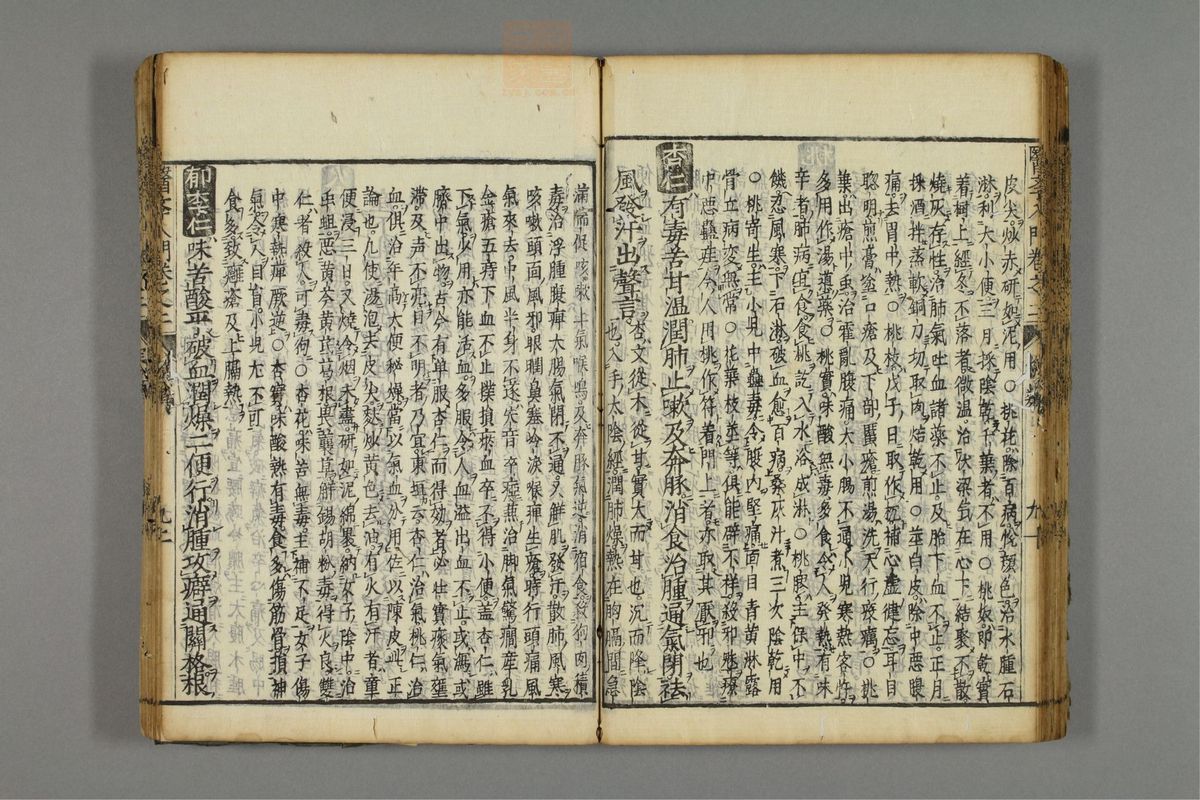 皮尖炒赤研如泥用○桃花除百病悅顏色治水腫石
淋利大小便三月採陰乾千葉者不用○桃奴即乾實
着樹上經冬不落者微溫治伏梁氣在心下結聚不散
燒灰存性治肺氣吐血諸藥不止及胎下血不止正月
採酒拌蒸軟銅刀切取肉焙乾用○莖白皮除中惡腹
痛去胃中熱○桃枝戊子日取作枕補心虛健忘耳目
聰明煎膏塗口瘡及下部䘌瘡煎湯洗天行疫癘○桃
葉出瘡中虫治霍亂腹痛大小腸不通小兒寒熱客忤
多用作湯導藥○桃實味酸無毒多食令人發熱有味
辛者肺病宜食食桃訖入水浴成淋○桃膠主保中不
饑忍風寒下石淋破血愈百病桑灰汁煮三次陰乾用
○桃寄生主小兒中蠱毒令腹內堅痛面目青黃淋露
骨立病變無常○花葉枝莖等俱能辟不祥殺邪魅療
中惡蠱疰今人用桃作符着門上者亦取其厭邪也
杏仁有毒苦甘溫潤肺止嗽及奔豚消食治腫通氣閉祛
風發汗出聲言杏文從木從甘實大而甘也沉而降陰
也入手太陰經潤肺燥熱在胸膈間急
滿喘促咳嗽上氣喉鳴及奔豚氣逆消宿食殺狗肉積
毒治浮腫腹痺大腸氣閉不通又解肌發汗散肺風寒
咳嗽頭面風邪眼瞤鼻塞冷淚喉痺生瘡時行頭痛風
氣來去中風半身不遂失音卒瘂兼治脚氣驚癇産乳
金瘡五痔下血不止撲損瘀血卒不得小便蓋杏仁雖
下氣少用亦能活血多服令人血溢出血不止或瀉或
臍中出物古今有單服杏仁而得効者必壯實痰氣壅
滯及声不亮目不明者乃宜東垣云杏仁治氣桃仁治
血俱治年高大便秘燥當以氣血分用佐以陳皮此正
論也凡使湯泡去皮尖麩炒黃色去油有火有汗者童
便浸三日又燒令烟未盡研如泥綿裹納女子陰中治
虫蛆惡黃芩黃芪葛根畏蘘草解錫胡粉毒得火良雙
仁者殺人可毒狗○杏花味苦無毒主補不足女子傷
中寒熱痺厥逆○杏實味酸熱有毒食多傷筋骨損神
氣令人目盲小兒尤不可
食多致瘡癰及上膈熱
郁李仁味苦酸平破血潤燥二便行消腫攻癖通關格根